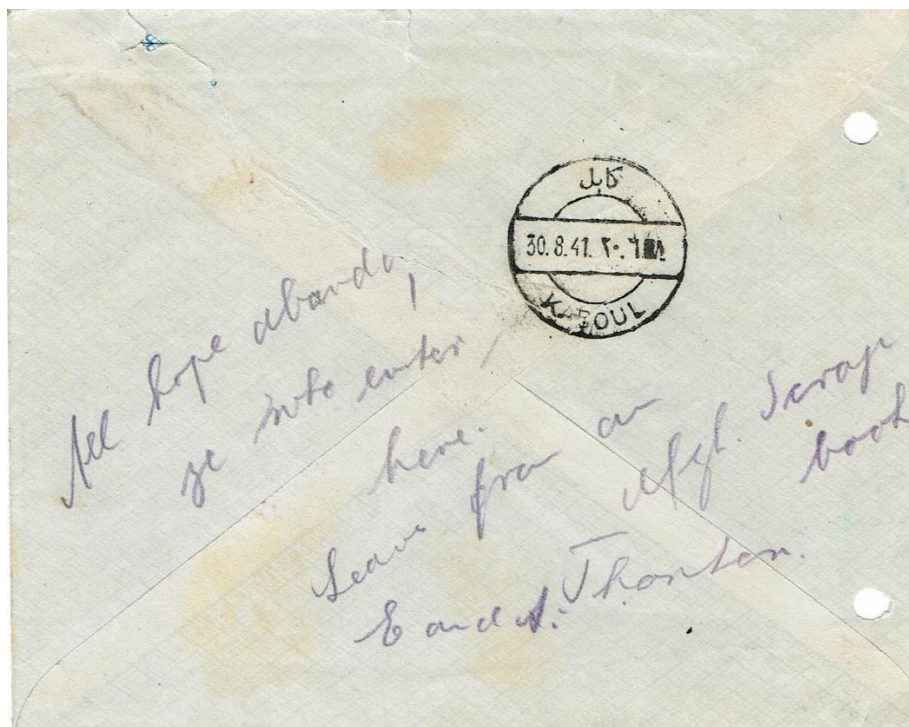 کابل
30.8.41.
KABOUL
All hope abando,
ye who enter
here.
Leaves from an
Afgh. Scrap
book
E and A. Thornton.